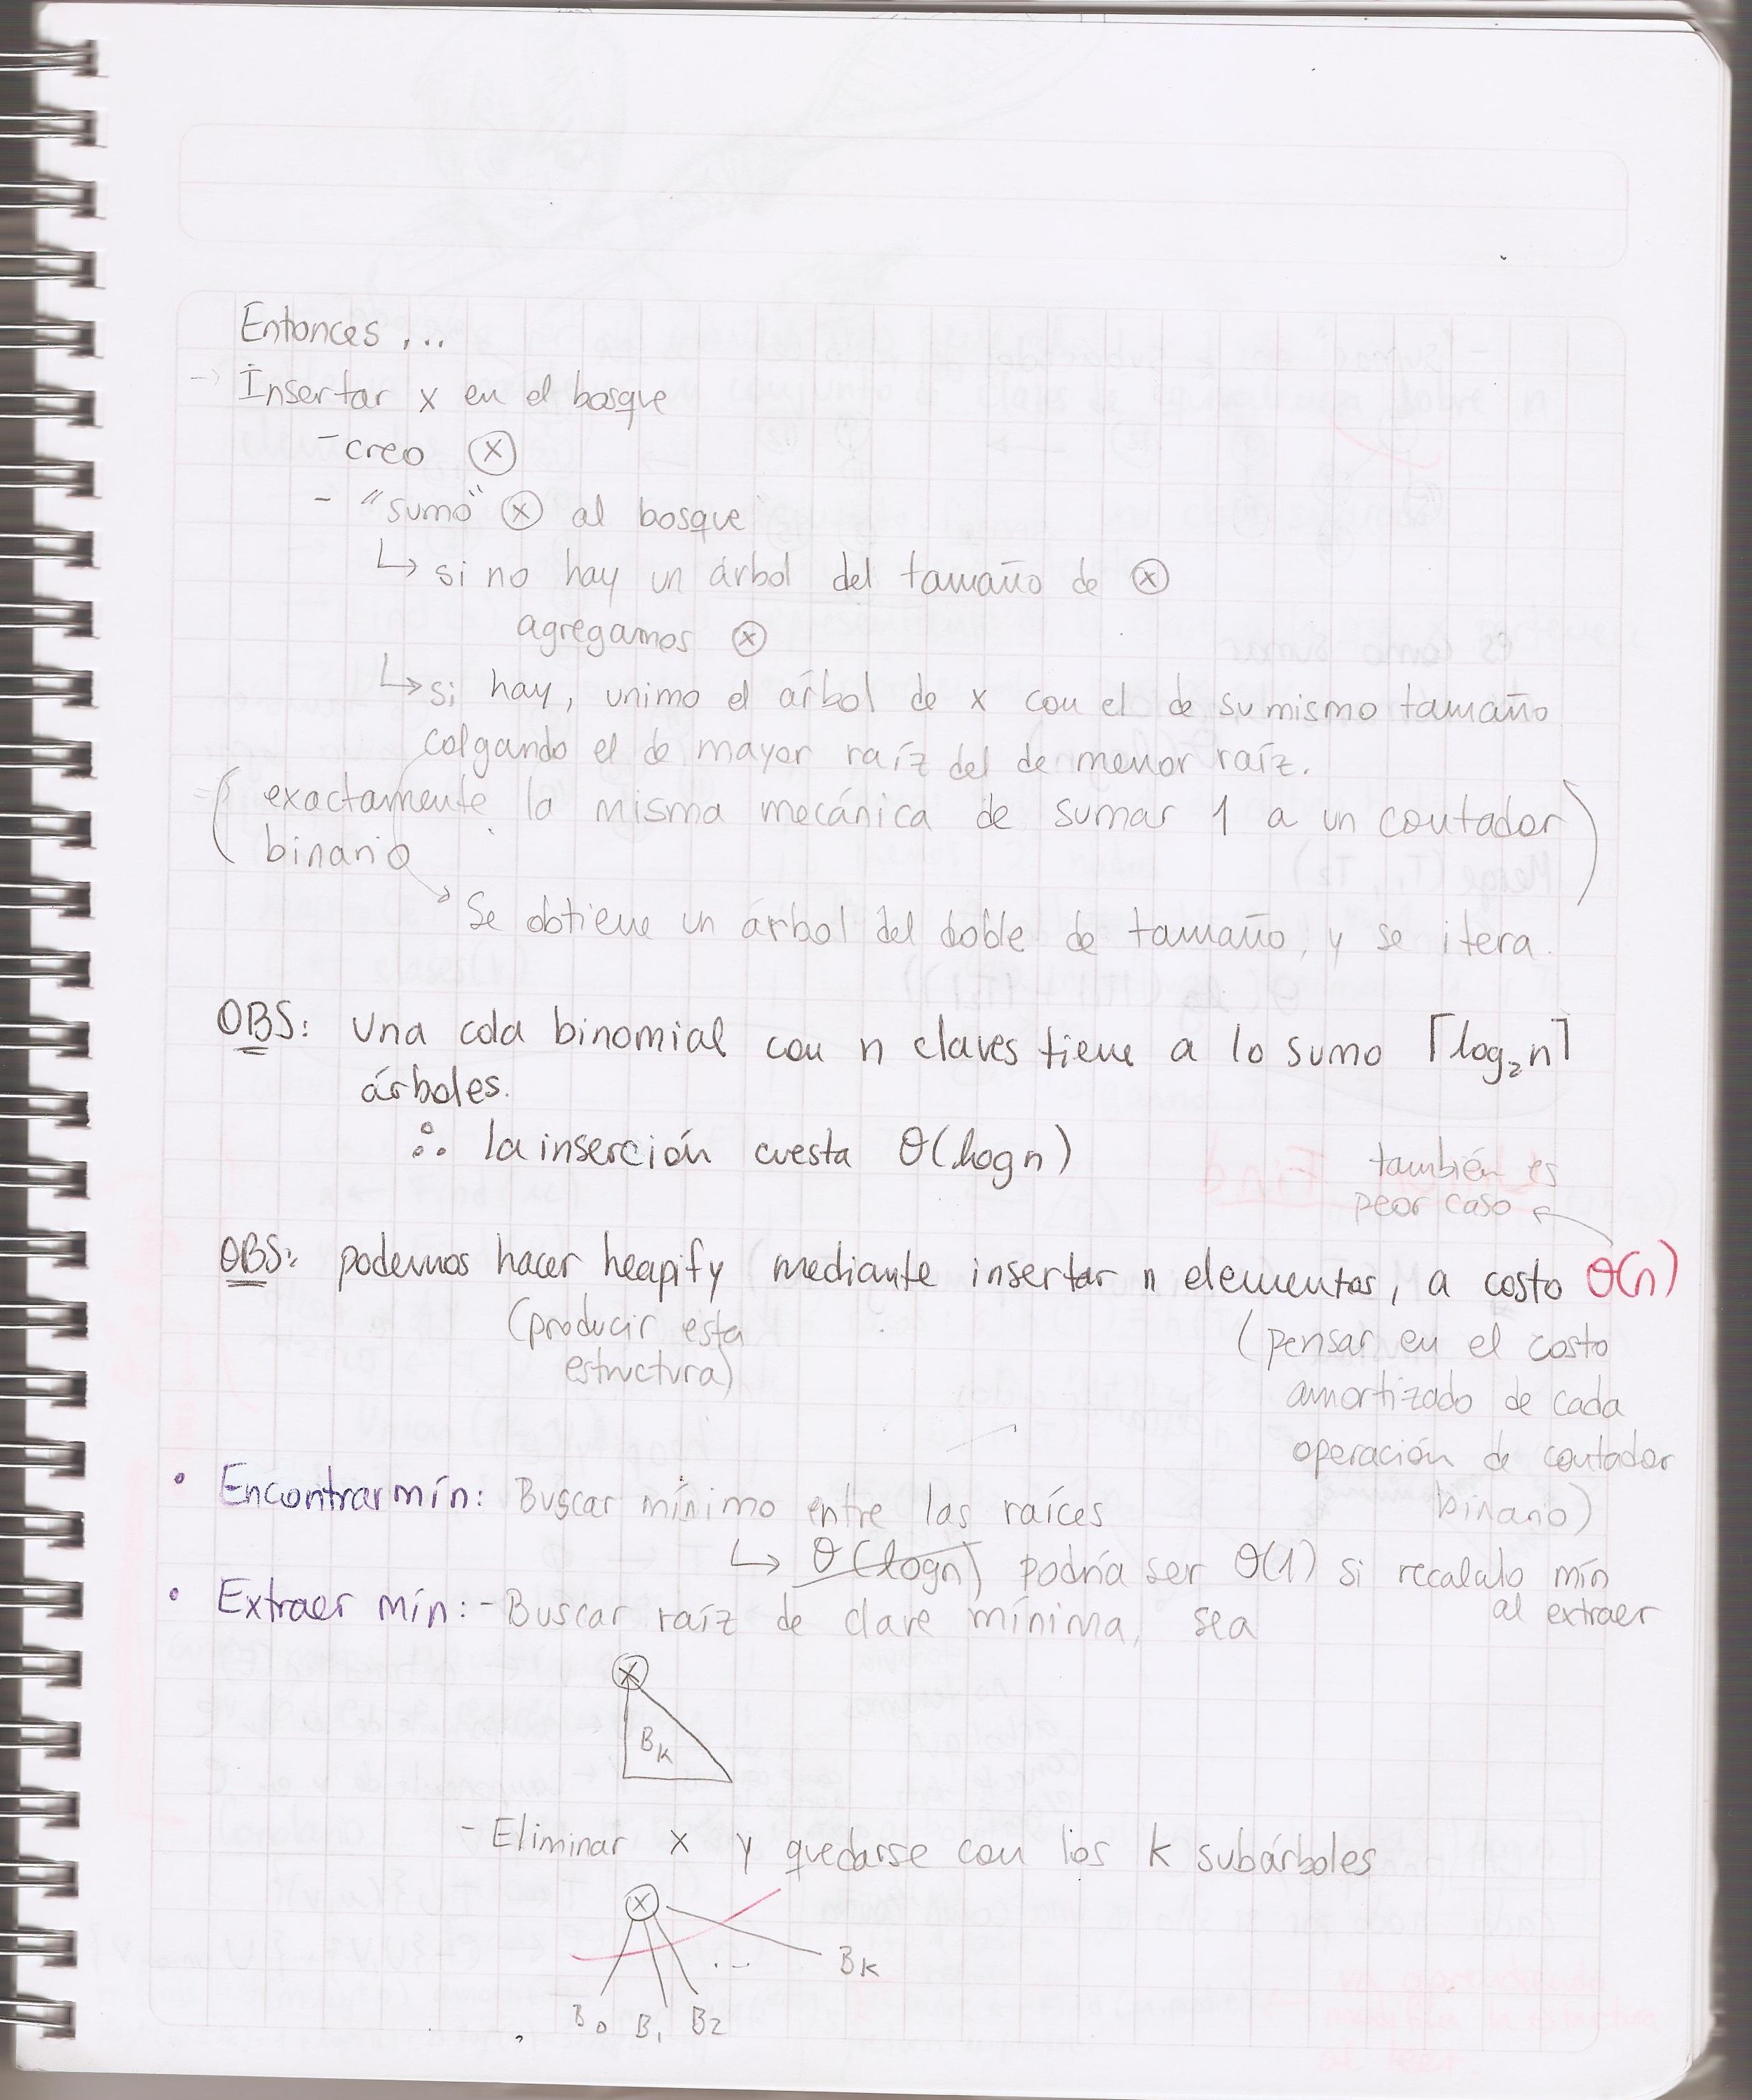 Entonces ...
→ Insertar x en el bosque
- creo ⓧ
- "sumo" ⓧ al bosque
↳ si no hay un árbol del tamaño de ⓧ
agregamos ⓧ
↳ si hay, unimo el árbol de x con el de su mismo tamaño
colgando el de mayor raíz del de menor raíz.
(exactamente la misma mecánica de sumar 1 a un contador
binario)
→ Se obtiene un árbol del doble de tamaño, y se itera.
OBS: Una cola binomial con n claves tiene a lo sumo ⌈log₂n⌉
árboles.
∴ la inserción cuesta θ(log n)
también es
peor caso ←
OBS: podemos hacer heapify mediante insertar n elementos, a costo θ(n)
(producir esta
estructura)
(pensar en el costo
amortizado de cada
operación de contador
binario)
• Encontrar mín: Buscar mínimo entre las raíces
↳ θ(logn) podría ser θ(1) si recalculo mín
al extraer
• Extraer mín: - Buscar raíz de clave mínima, sea
x
Bk
- Eliminar x y quedarse con los k subárboles
x
... Bk
B0 B1 B2